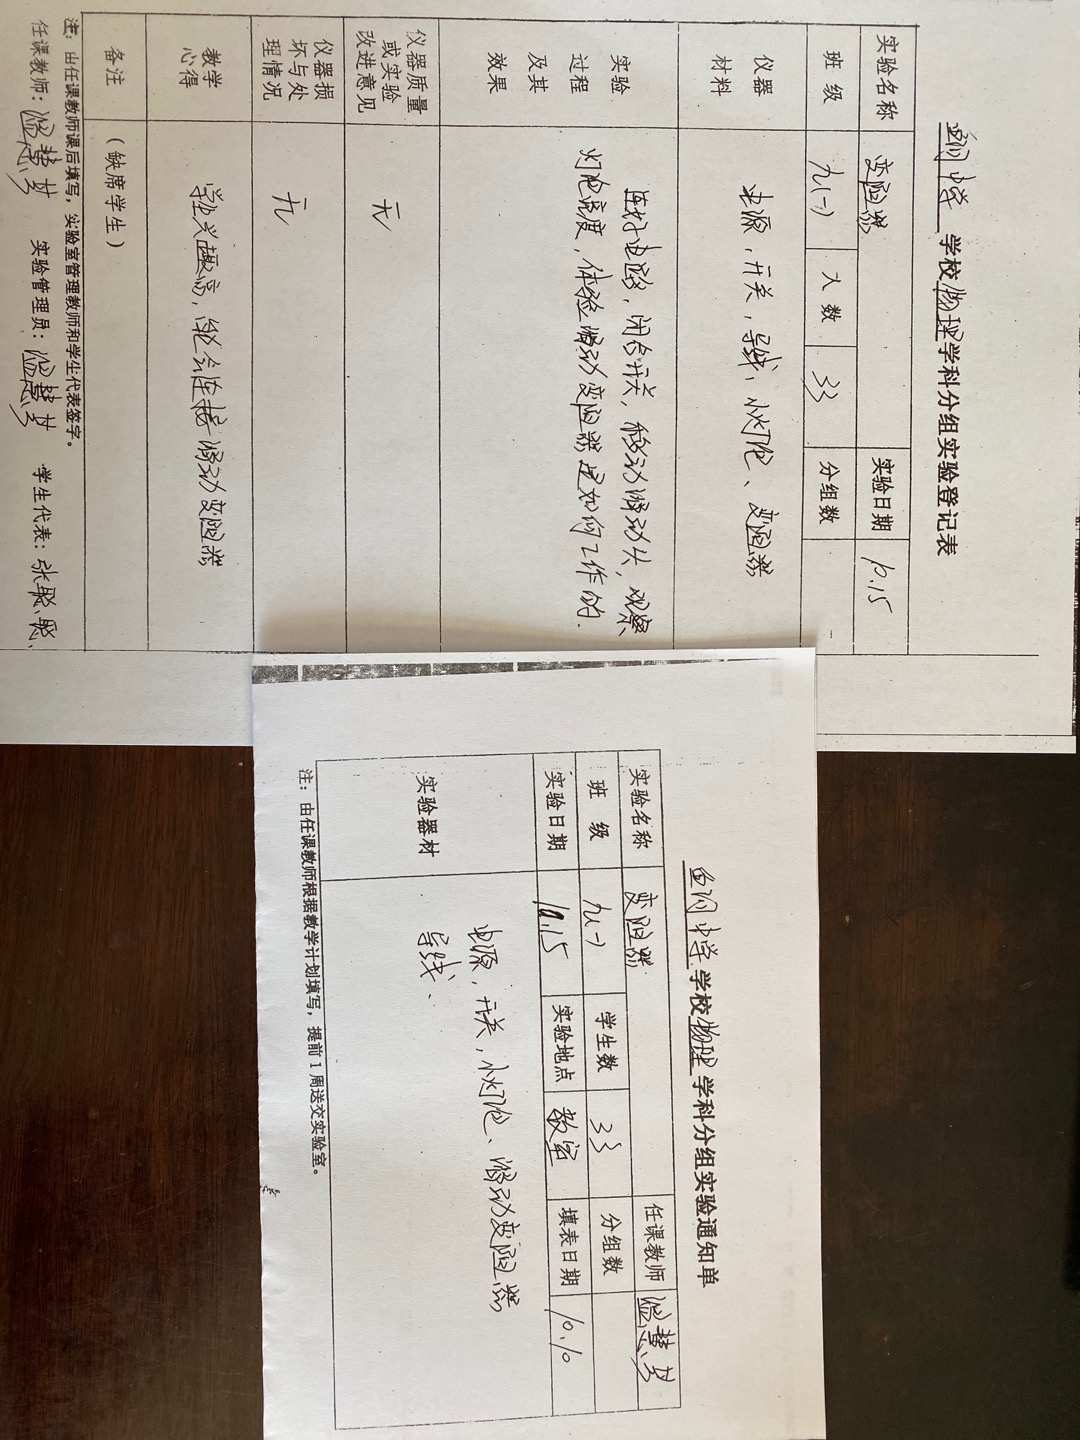 中学 学校物理学科分组实验登记表
实验名称 变阻器 实验日期 10.15
班 级 九(一) 人 数 33 分组数
仪器材料 电源,开关,导线、小灯泡、变阻器
实验过程及其效果 连好电路,闭合开关,移动滑动头,观察
灯泡亮度,体验滑动变阻器是如何工作的.
仪器质量或实验改进意见 无
仪器损坏与处理情况 无
教学心得 学生兴趣高,能会连接滑动变阻器
备注 (缺席学生)
注:由任课教师课后填写,实验室管理教师和学生代表签字。
任课教师:温慧 实验管理员:温慧 学生代表:张聪聪
中学 学校物理 学科分组实验通知单
实验名称 变阻器 任课教师 温慧
班 级 九(一) 学生数 33 分组数
实验日期 10.15 实验地点 教室 填表日期 10.10
实验器材 电源,开关,小灯泡、滑动变阻器
导线、
注:由任课教师根据教学计划填写,提前1周送交实验室。